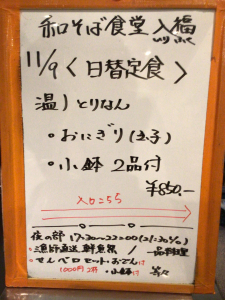 和そば食堂 入福
いりふく
11/9 〈日替定食〉
温) とりなん
・おにぎり(玉子)
・小鉢 2品付
¥850.-
入口こちら
夜の部 17:30~22:00
・漁師直送 鮮魚 / 一品料理
・せんべろセット・おでん
1000円 2杯・小鉢 等々